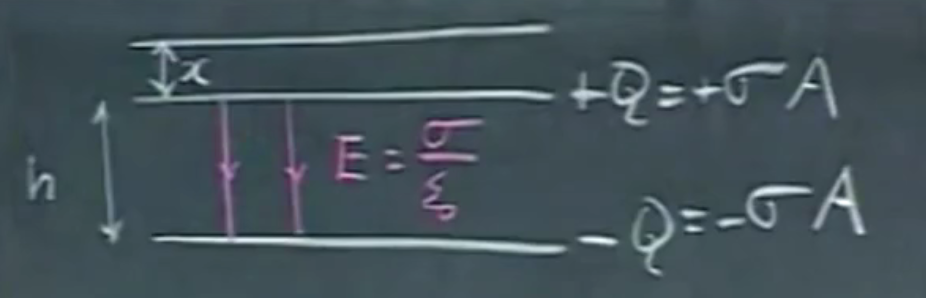 x
+Q=+σA
h
E = σ/ε₀
-Q=-σA